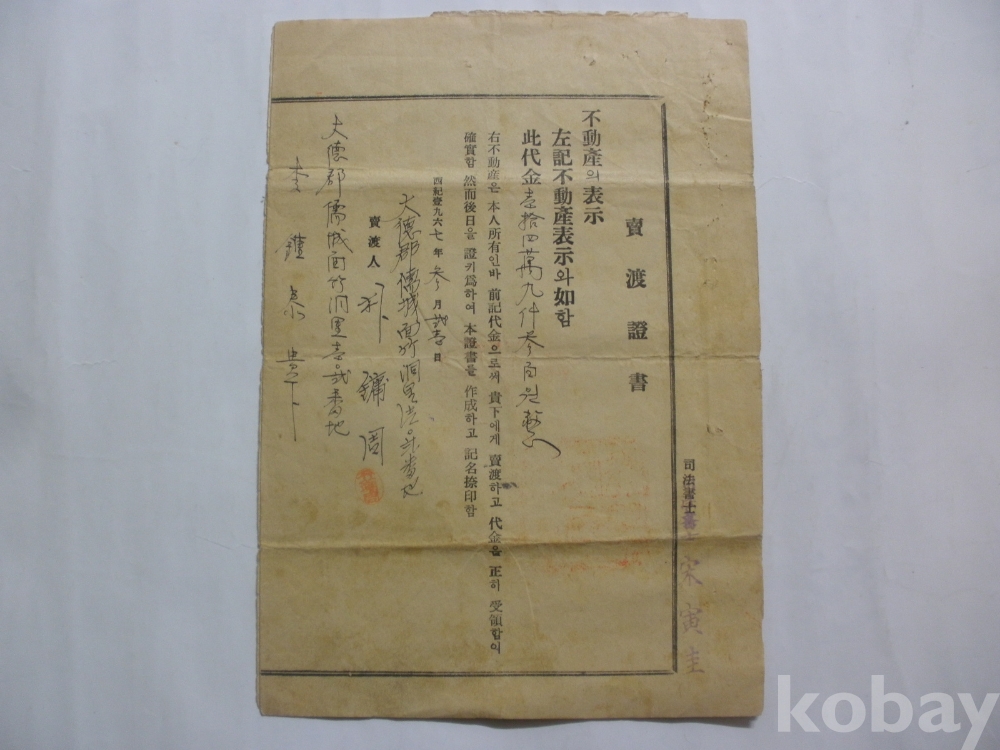 賣渡證書
不動產의表示
左記不動產表示와如함
此代金壹拾四萬九仟參百원整
右不動産은 本人所有인바 前記代金으로써 貴下에게 賣渡하고 代金을 正히 受領함이
確實함 然而後日을 證키爲하여 本證書를 作成하고 記名捺印함
西紀壹九六七年 參月 日
大德郡儒城面竹洞里 番地
賣渡人 鏞周
大德郡儒城面竹洞里壹〇貳番地
李鍾泰 貴下
司法書士 宋寅圭
kobay